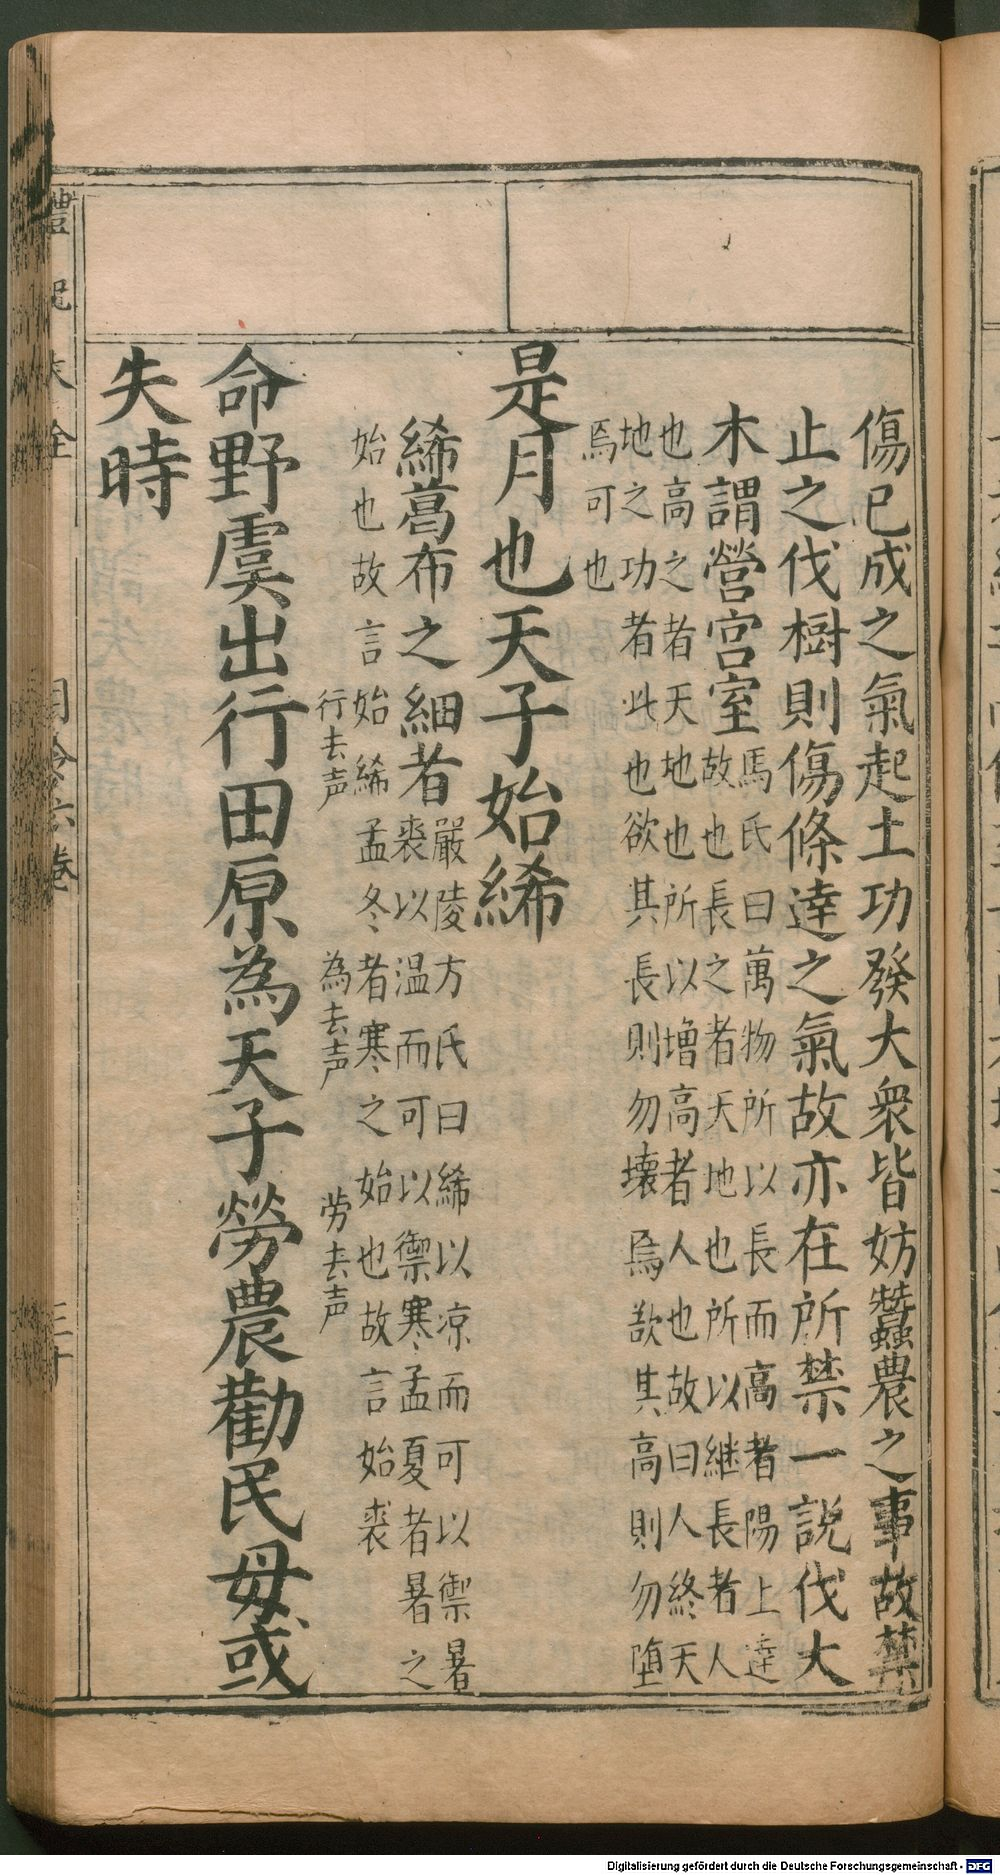 傷已成之氣起土功發大衆皆妨蠶農之事故禁
止之伐樹則傷條達之氣故亦在所禁一說伐大
木謂營宮室馬氏曰萬物所以長而高者陽上達
故也長之者天地也所以継長者人
也高之者天地也所以增高者人也故曰人終天
地之功者此也欲其長則勿壊焉欲其高則勿墮
焉可也
是月也天子始絺
絺葛布之細者嚴陵方氏曰絺以凉而可以禦暑
裘以温而可以禦寒孟夏者暑之
始也故言始絺孟冬者寒之始也故言始裘
行去声 為去声 劳去声
命野虞出行田原為天子勞農勸民毋或
失時
月令六巻
三十
Digitalisierung gefördert durch die Deutsche Forschungsgemeinschaft - DFG